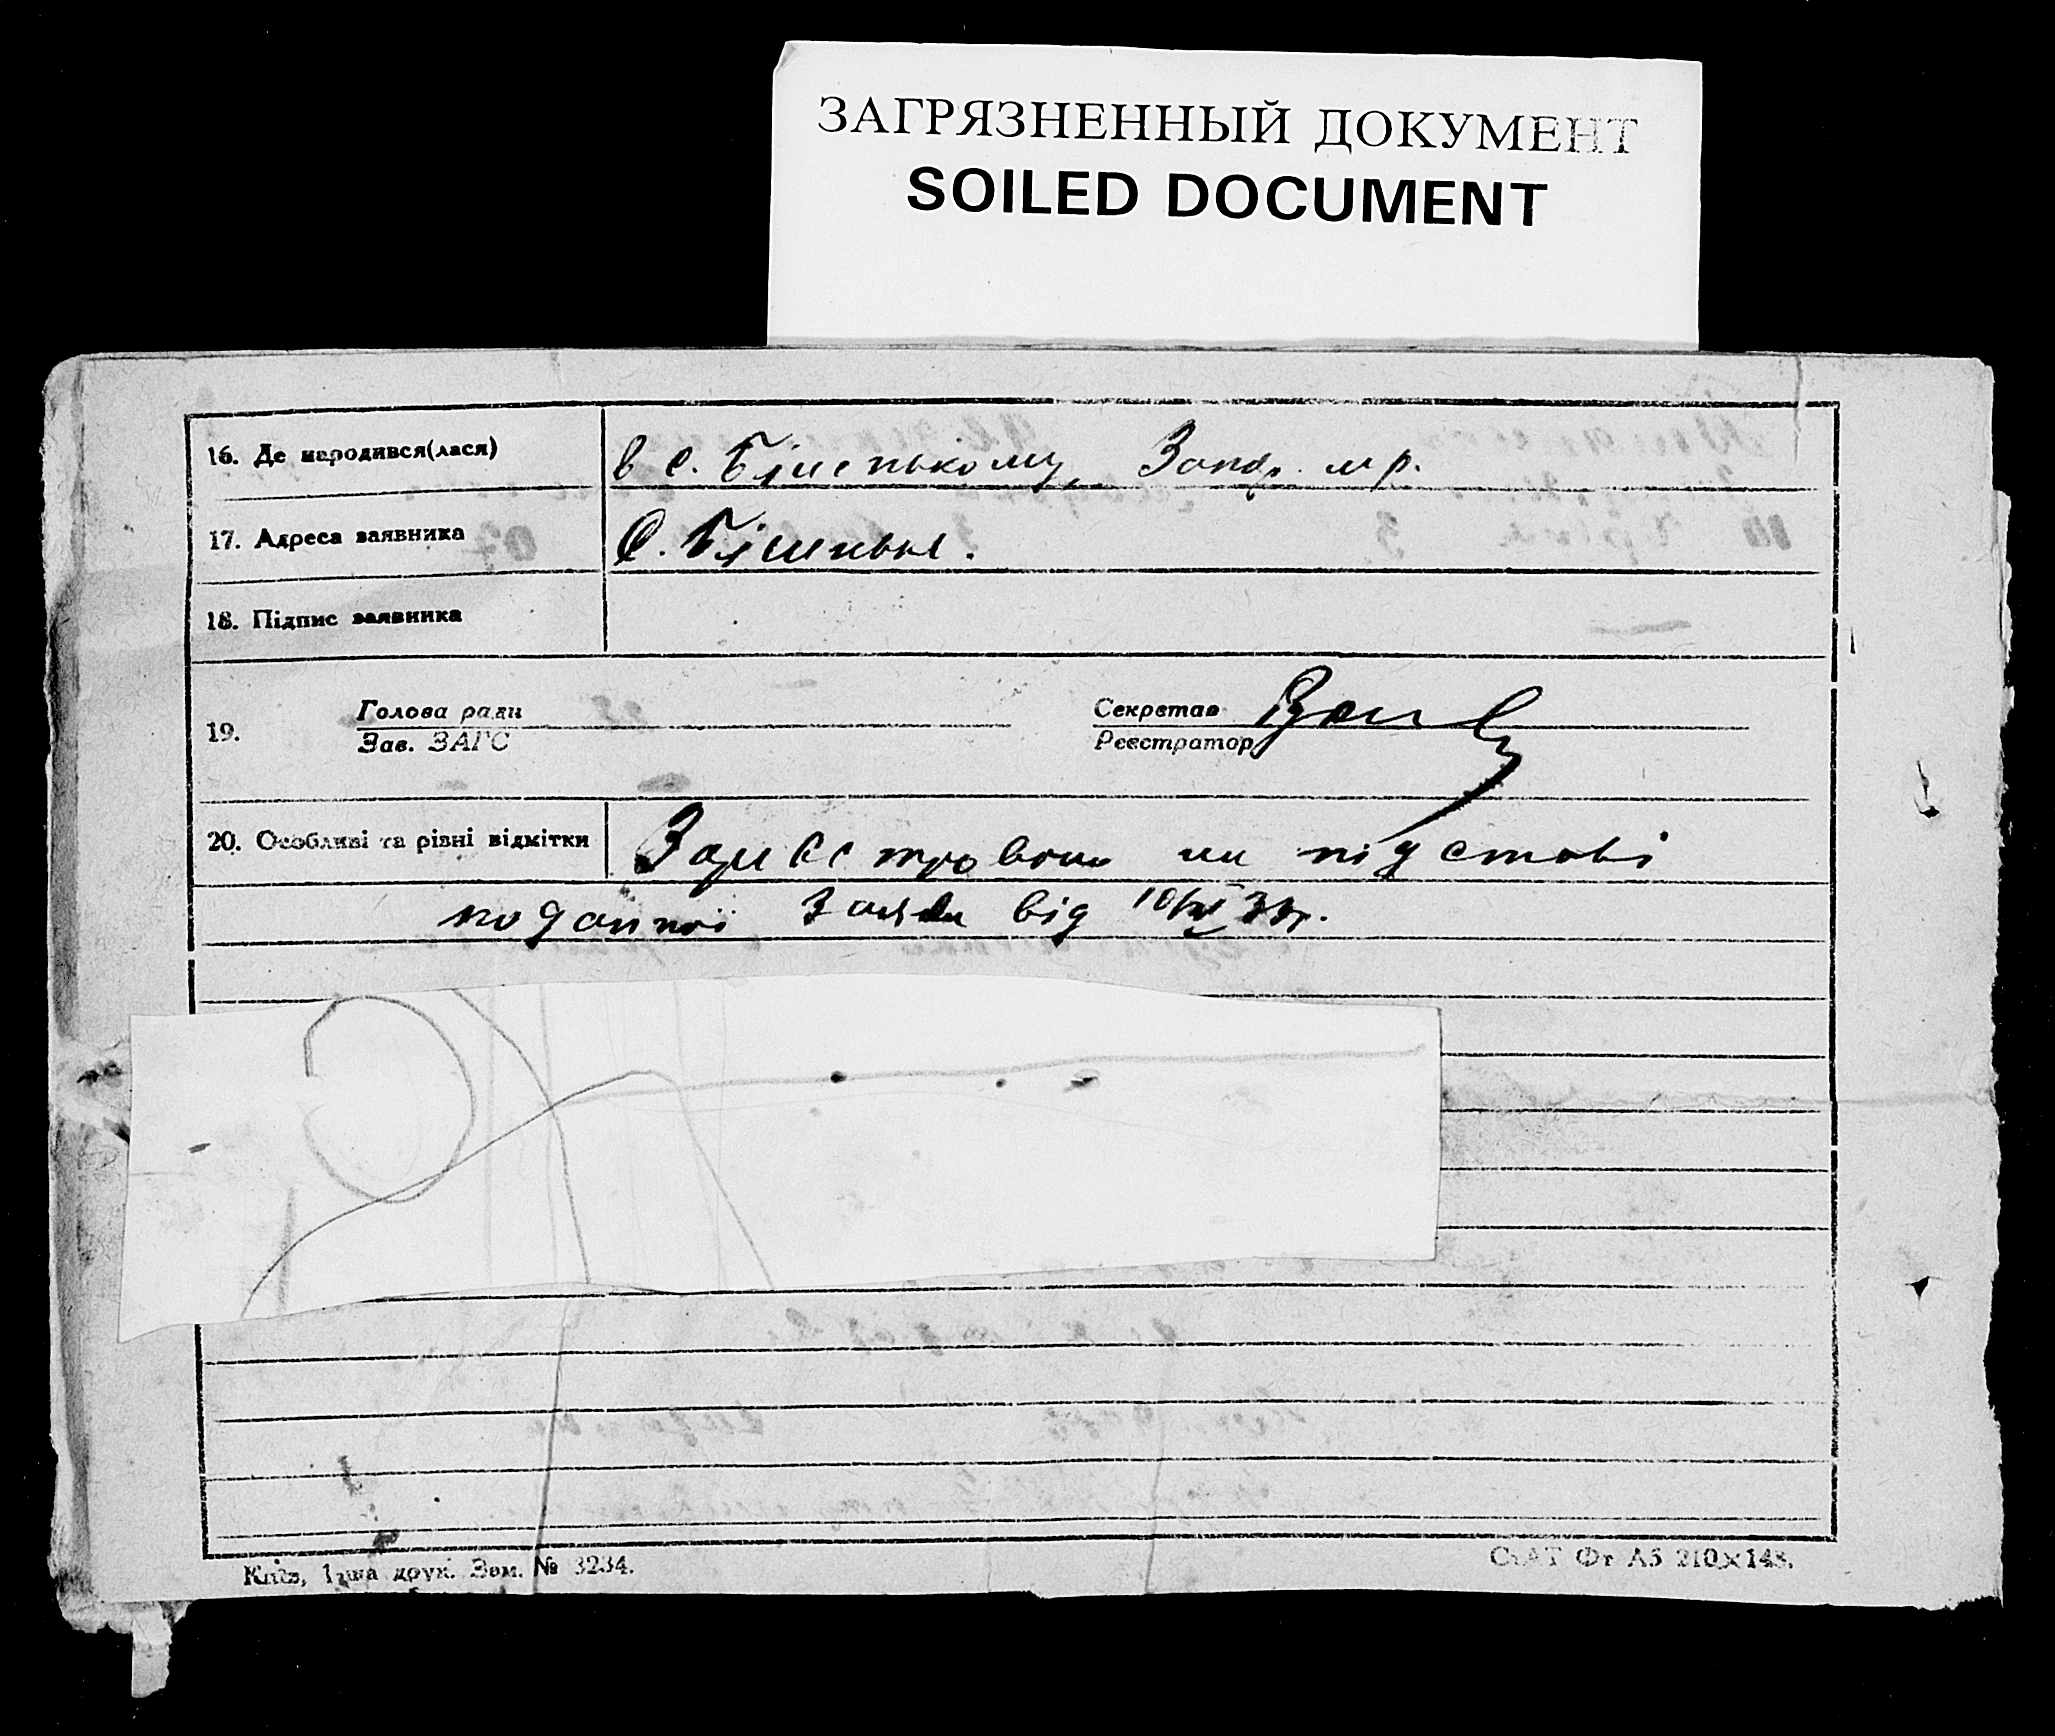 ЗАГРЯЗНЕННЫЙ ДОКУМЕНТ
SOILED DOCUMENT
16. Де народився(лася) в с. Біленькому, Запор.
17. Адреса заявника С. Біленьке.
18. Підпис заявника
19. Голова ради Секретар
Зав. ЗАГС Реєстратор
20. Особливі та різні відмітки Зареєстровано на підставі
поданної заяви від
Київ, 1-ша друк. Зам. № 3234.
СтАТ Фт А5 210×148.